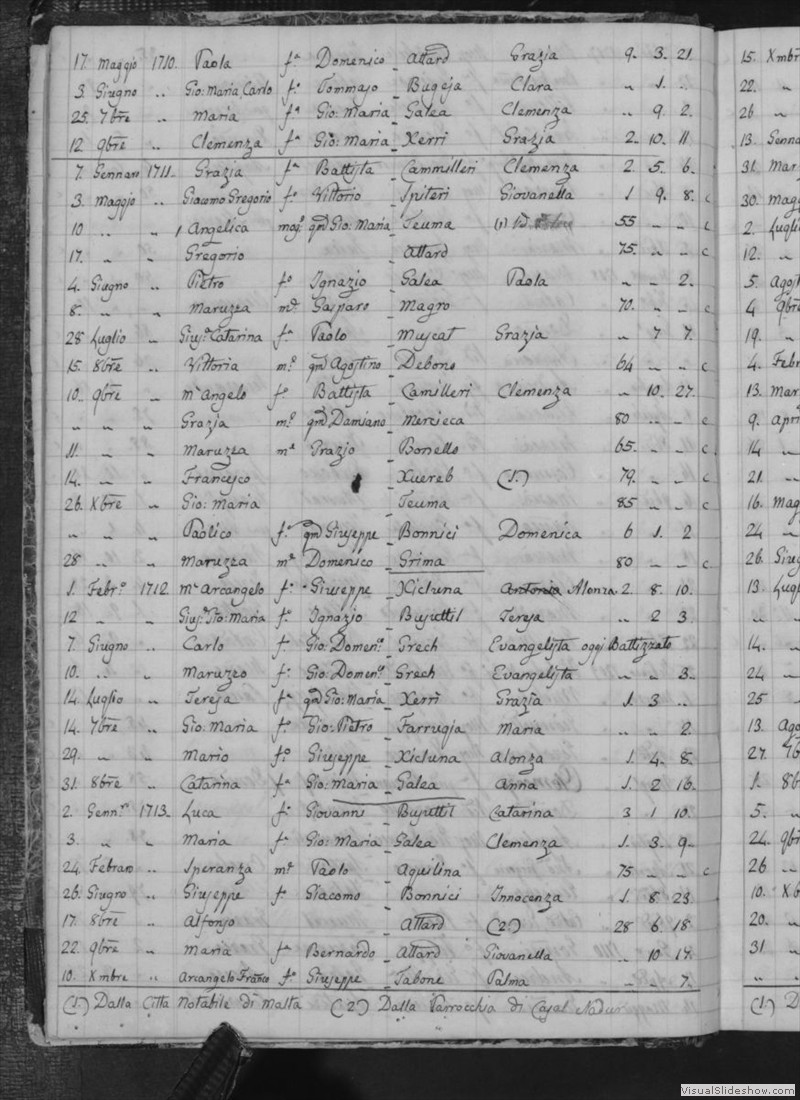 17. Maggio 1710. Paola fᵃ Domenico _ Attard Grazia 9. 3. 21 15. Xmbr
3. Giugno .. Gio: Maria, Carlo fᵒ Tommaso _ Bugeja Clara .. 1. .. 22. „
25. 7bre .. Maria fᵃ Gio: Maria _ Galea Clemenza .. 9. 2. 26 „
12 9bre .. Clemenza fᵃ Gio: Maria _ Xerri Grazia 2. 10. 11. 13. Genna
7. Gennaro 1711. Grazia fᵃ Battista _ Cammilleri Clemenza 2. 5. 6. 31. Mar
3. Maggio .. Giacomo Gregorio fᵒ Vittorio _ Spiteri Giovanella 1. 9. 8. c 30. magg
10 .. .. Angelica mogᵉ qm Gio: Maria _ Teuma (1) 55 .. .. c 2. Lugli
17. „ „ Gregorio Attard 75. .. .. c 12. „
4. Giugno „ Pietro fᵒ Ignazio _ Galea Paola .. .. 2. 5. Agost
8. „ „ Maruzea mᵉ Gasparo _ Magro 70. .. .. c 4 9bre
28 Luglio „ Giusᵃ Catarina fᵃ Paolo _ Muscat Grazia .. 7 7. 19. „
15. 8bre „ Vittoria mᵉ qm Agostino _ Debono 64 .. .. c 4. Febr
10. 9bre „ mᵒ Angelo fᵒ Battista _ Camilleri Clemenza .. 10. 27. 13. Mar
„ „ „ Grazia mᵉ qm Damiano _ Mercieca 80 .. .. c 9. Apri
11. „ „ Maruzea mᵉ Grazio _ Bonello 65. .. .. c 14 „
14. „ „ Francesco Xuereb (1.) 79. .. .. c 21. „
26. Xbre „ Gio: Maria Teuma 85 .. .. c 16. Mag
„ „ „ Paolico fᵒ qm Giuseppe _ Bonnici Domenica 6 1. 2 24 „
28 „ „ Maruzea mᵉ Domenico _ Grima 80 .. .. c 26. Giug
1. Febrᵒ 1712. mᵒ Arcangelo fᵒ Giuseppe _ Xicluna Antonia Alonza 2. 8. 10. 13. Lugl
12 „ „ Giusᵉ Gio: Maria fᵒ Ignazio _ Busuttil Teresa .. 2 3. „
7. Giugno .. Carlo fᵒ Gio: Domenᵒ _ Grech Evangelista oggi Battizzato 14. „
10. .. „ Maruzzo fᵒ Gio: Domenᵒ _ Grech Evangelista .. .. 3. 24 „
14. Luglio „ Teresa fᵃ qm Gio: Maria _ Xerri Grazia 1. 3 .. 25 „
14. 7bre .. Gio: Maria fᵒ Gio: Pietro _ Farrugia Maria .. .. 2. 13. Ago
29. „ „ Mario fᵒ Giuseppe _ Xicluna Alonza 1. 4. 8. 27. 7b
31. 8bre „ Catarina fᵃ Gio: Maria _ Galea Anna 1. 2 16. 1. 8b
2. Gennᵒ 1713. Luca fᵒ Giovanni _ Busuttil Catarina 3 1 10. 5. „
3. „ „ Maria fᵃ Gio: Maria _ Galea Clemenza 1. 3. 9. 24. 9br
24. Febraro .. Speranza mᵉ Paolo _ Aquilina 75 .. .. c 26 „
26. Giugno „ Giuseppe fᵒ Giacomo _ Bonnici Innocenza 1. 8. 23 10. Xb
17. 8bre .. Alfonso Attard (2.) 28 6. 18. 20. „
22. 9bre „ Maria fᵃ Bernardo _ Attard Giovanella .. 10 14. 31 „
10. Xmbre .. Arcangelo Franco fᵒ Giuseppe _ Tabone Palma .. .. 7. „ „
(1.) Dalla Citta Notabile di Malta (2.) Dalla Parrocchia di Casal Nadur (1.) D
VisualSlideshow.com